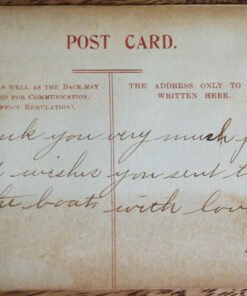 POST CARD.
AS WELL AS THE BACK, MAY
D FOR COMMUNICATION.
REGULATION).
THE ADDRESS ONLY TO
WRITTEN HERE.
you very much
wishes you sent
the boat with love